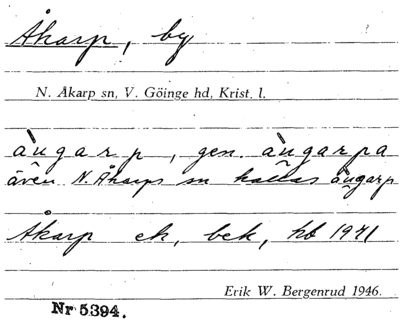 Åkarp, by
N. Åkarp sn, V. Göinge hd, Krist. l.
àu̯garp, gen. àu̯garpa
även N. Åkarps sn kallas àu̯garp
Åkarp ek, bek, hd 1971
Erik W. Bergenrud 1946.
Nr 5394.